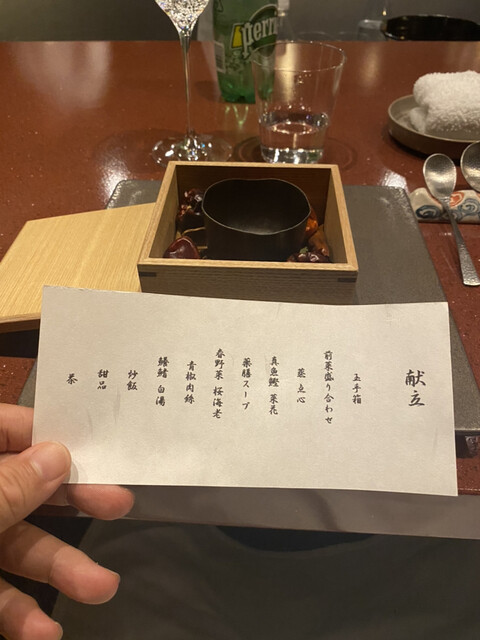 献立
玉手箱
前菜盛り合わせ
蒸点心
真魚鰹 菜花
薬膳スープ
春野菜 桜海老
青椒肉絲
鱶鰭 白湯
炒飯
甜品
茶
perr